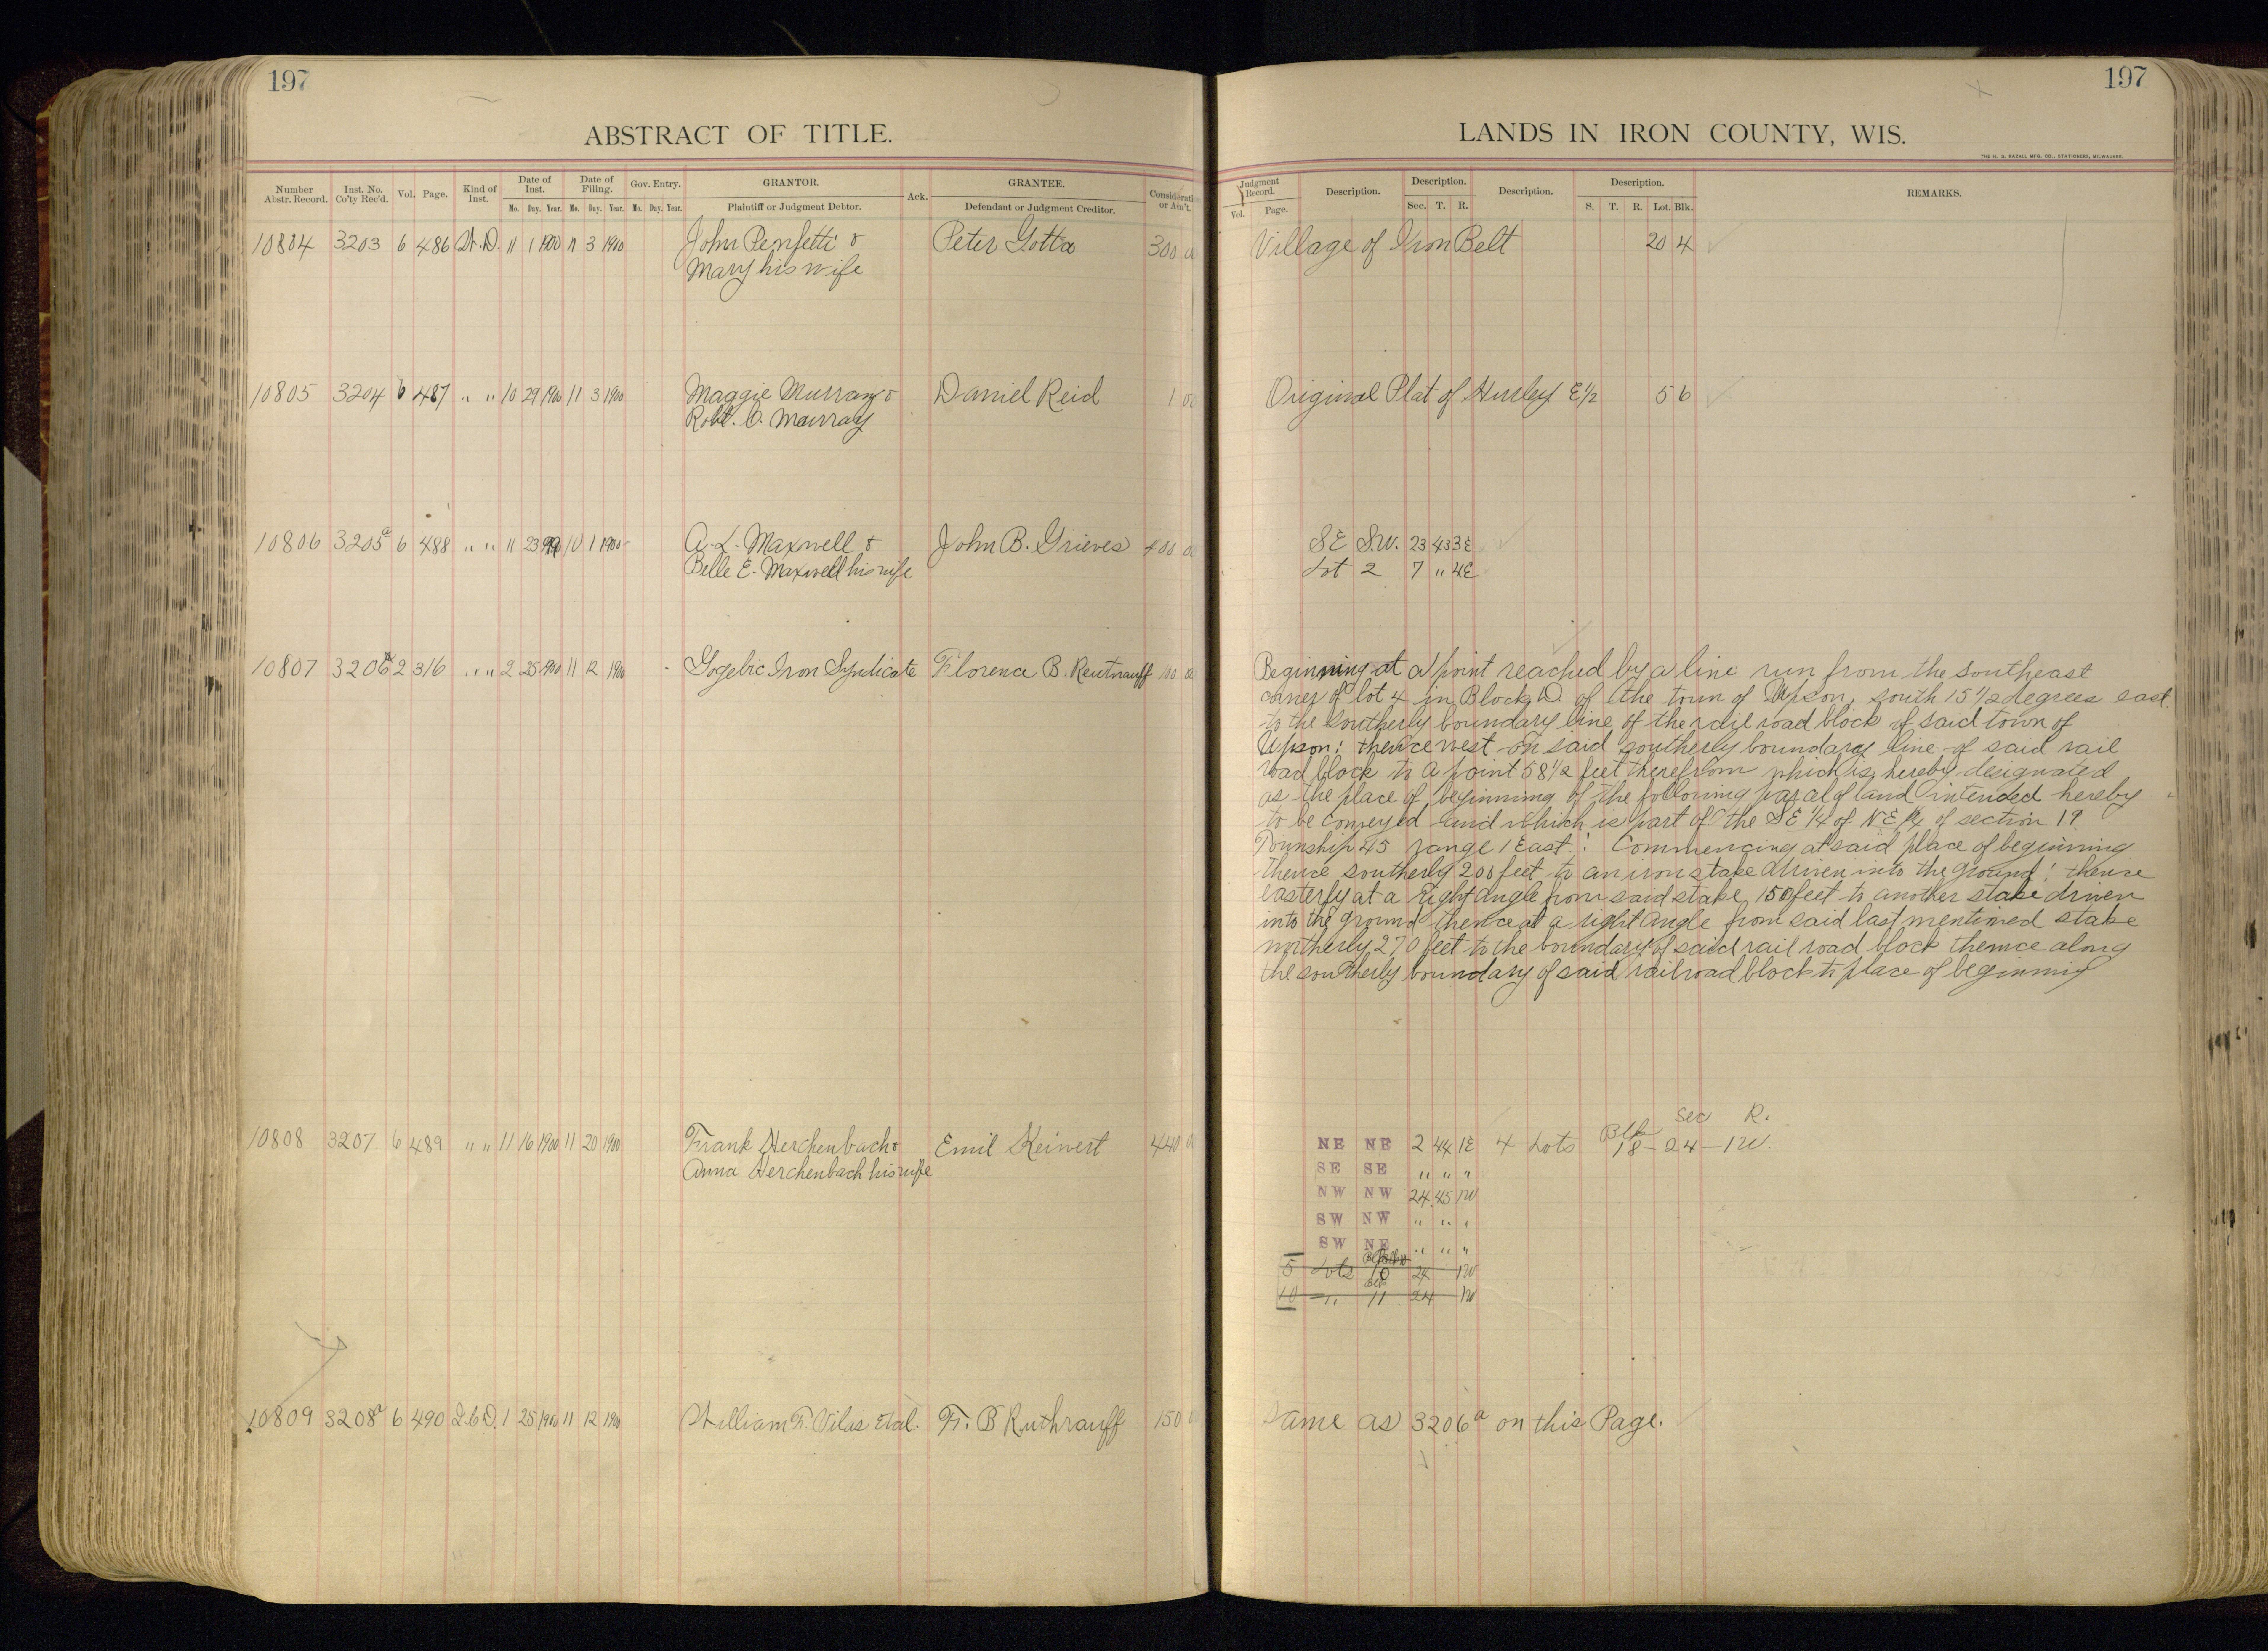 197
ABSTRACT OF TITLE.
Number Abstr. Record. Inst. No. Co'ty Rec'd. Vol. Page. Kind of Inst. Date of Inst. Mo. Day. Year. Date of Filing. Mo. Day. Year. Gov. Entry. Mo. Day. Year. GRANTOR. Plaintiff or Judgment Debtor. Ack. GRANTEE. Defendant or Judgment Creditor. Consideration or Am't.
10804 3203 6 486 W.D. 11 1 1900 11 3 1900 John Penfetti & Peter Gotta 300 00
Mary his wife
10805 3204 6 487 " " 10 29 1900 11 3 1900 Maggie Murray & Daniel Reid 1 00
Robt. O. Murray
10806 3205a 6 488 " " 11 23 10 1 1900 A. L. Maxwell & John B. Grieves 400 00
Belle E. Maxwell his wife
10807 3206a 2 316 " " 2 25 1900 11 12 1900 Gogebic Iron Syndicate Florence B. Reutrauff 100 00
10808 3207 6 489 " " 11 16 1900 11 20 1900 Frank Herchenbach & Emil Keinert 440 0
Anna Herchenbach his wife
10809 3208a 6 490 Q.C.D. 1 25 1900 11 12 1900 William F. Vilas Etal. F. B Ruthrauff 150 0
197
LANDS IN IRON COUNTY, WIS.
THE H. G. RAZALL MFG. CO., STATIONERS, MILWAUKEE.
Judgment Record. Vol. Page. Description. Description. Sec. T. R. Description. Description. S. T. R. Lot. Blk. REMARKS.
Village of Iron Belt 20 4
Original Plat of Hurley E 1/2 5 6
SE S.W. 23 43 3E
Lot 2 7 " 4E
Beginning at a point reached by a line run from the southeast
corner of lot 4 in Block D. of the town of Upson, south 15 1/2 degrees east
to the southerly boundary line of the rail road block of said town of
Upson; thence west on said southerly boundary line of said rail
road block to a point 58 1/2 feet therefrom which is hereby designated
as the place of beginning of the following parcel of land intended hereby
to be conveyed and which is part of the SE 1/4 of NE 1/4 of section 19
Township 45 range 1 East: Commencing at said place of beginning
thence southerly 200 feet to an iron stake driven into the ground; thence
easterly at a right angle from said stake 150 feet to another stake driven
into the ground thence at a right angle from said last mentioned stake
northerly 270 feet to the boundary of said rail road block thence along
the southerly boundary of said railroad block to place of beginning
Sec R.
NE NE 2 44 1E 4 Lots Blk 18 - 24 - 1W.
SE SE " " "
NW NW 24 45 1W
SW NW " " "
SW NE " " "
5 Lots Blk 10 24 1W
10 " Blk 11 24 1W
Same as 3206a on this Page.